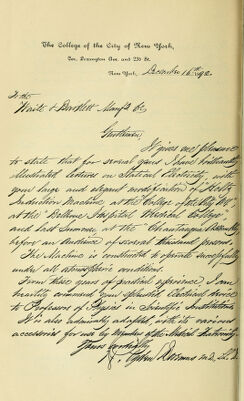 The College of the City of New York,
Cor. Lexington Ave. and 23d St.
New York, December 16th 92
To the
Waite & Bartlett Manf'g Co.
Gentlemen,
It gives me pleasure
to state that for several years I have brilliantly
illustrated lectures on Statical Electricity, with
your large and elegant modification of "Holtz
Induction Machine, at the College of the City N.Y.
at the Bellevue Hospital Medical College"
and last Summer, at the "Chautauqua Assembly
before an audience of several thousand persons.
The Machine is constructed to operate successfully
under all atmospheric conditions.
From three years of practical experience, I can
heartily commend your splendid Electrical device
to Professors of Physics in Scientific Institutions.
It is also admirably adapted, with its various
accessories for use by Members of the Medical Fraternity.
Yours Cordially,
Ogden Doremus M.D. LL.D.